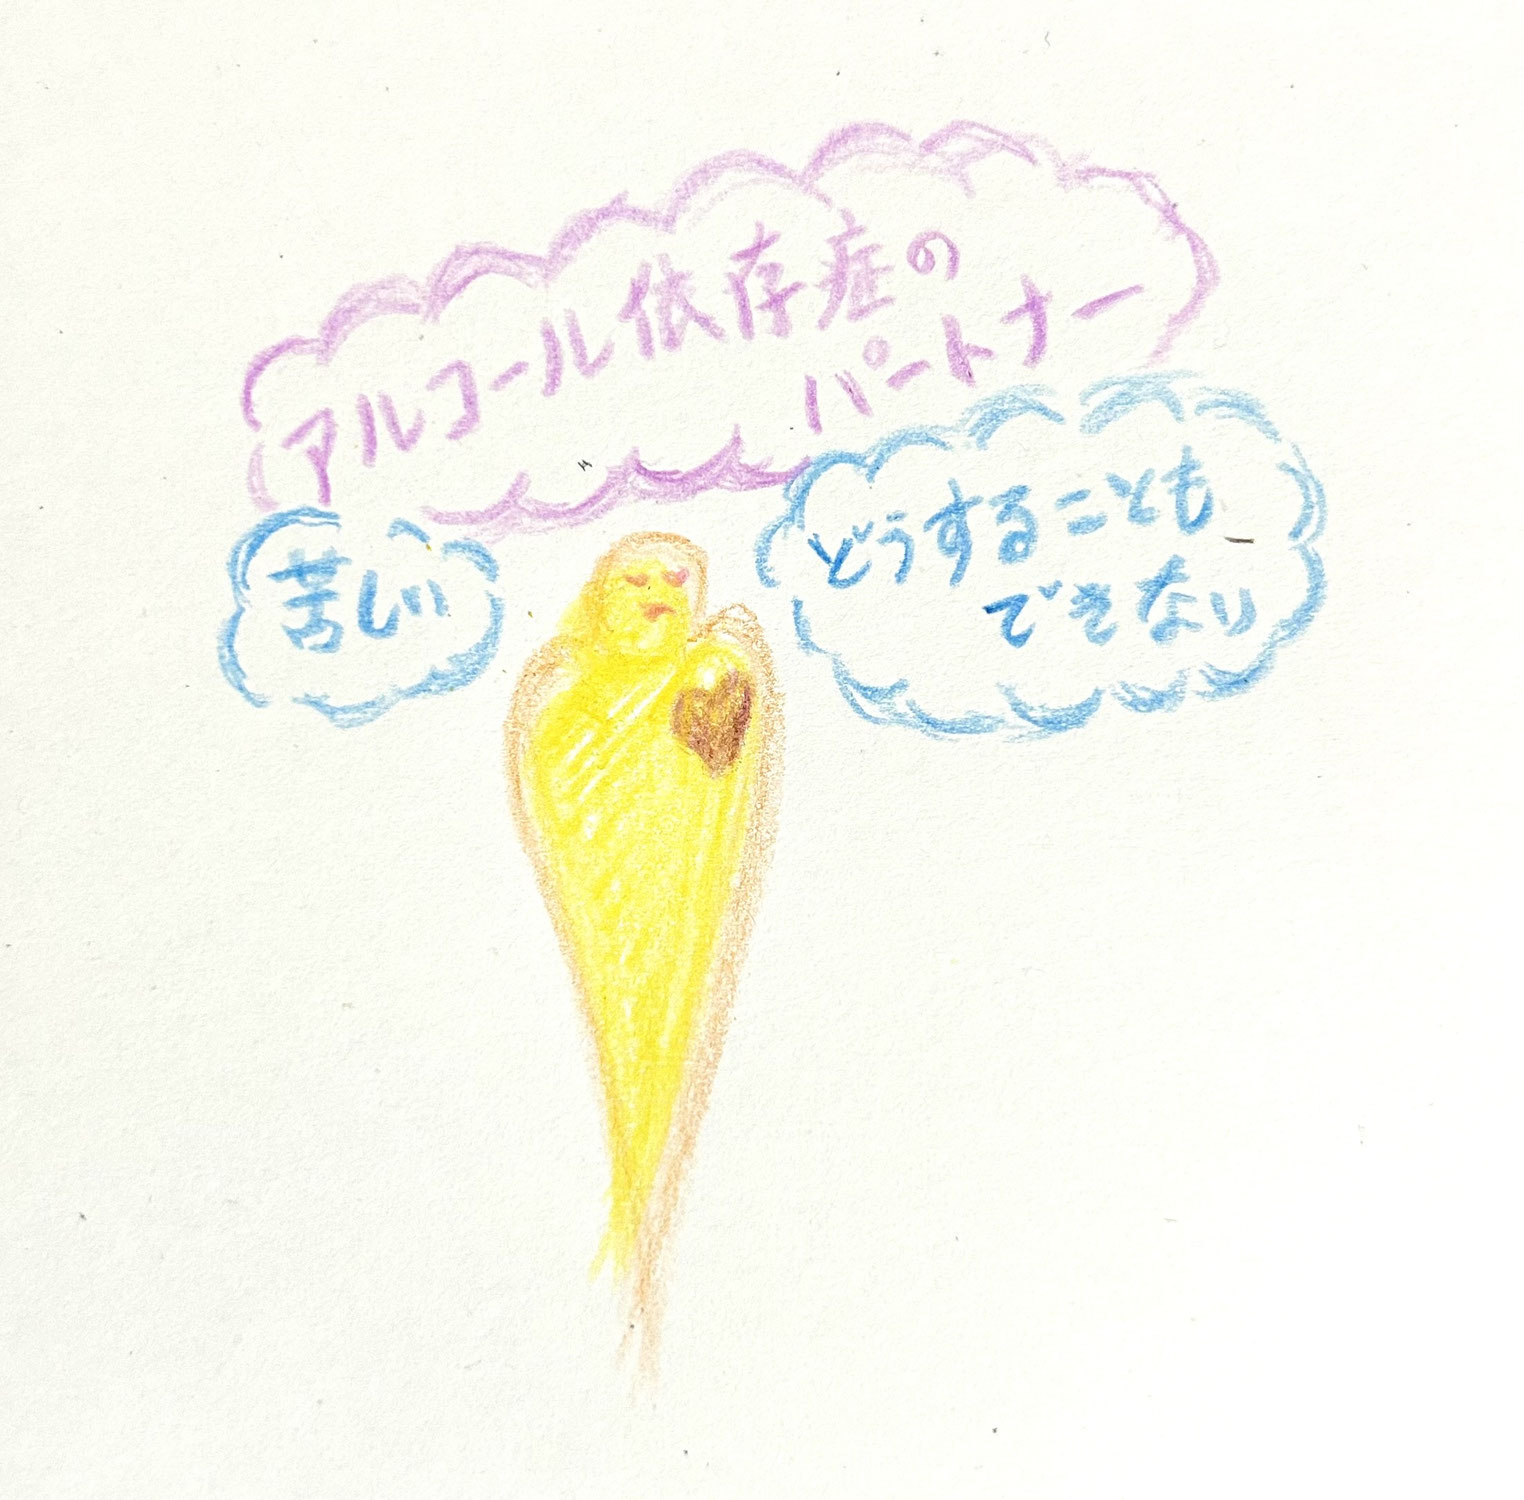 アルコール依存症の
パートナー
苦しい
どうすることも
できない